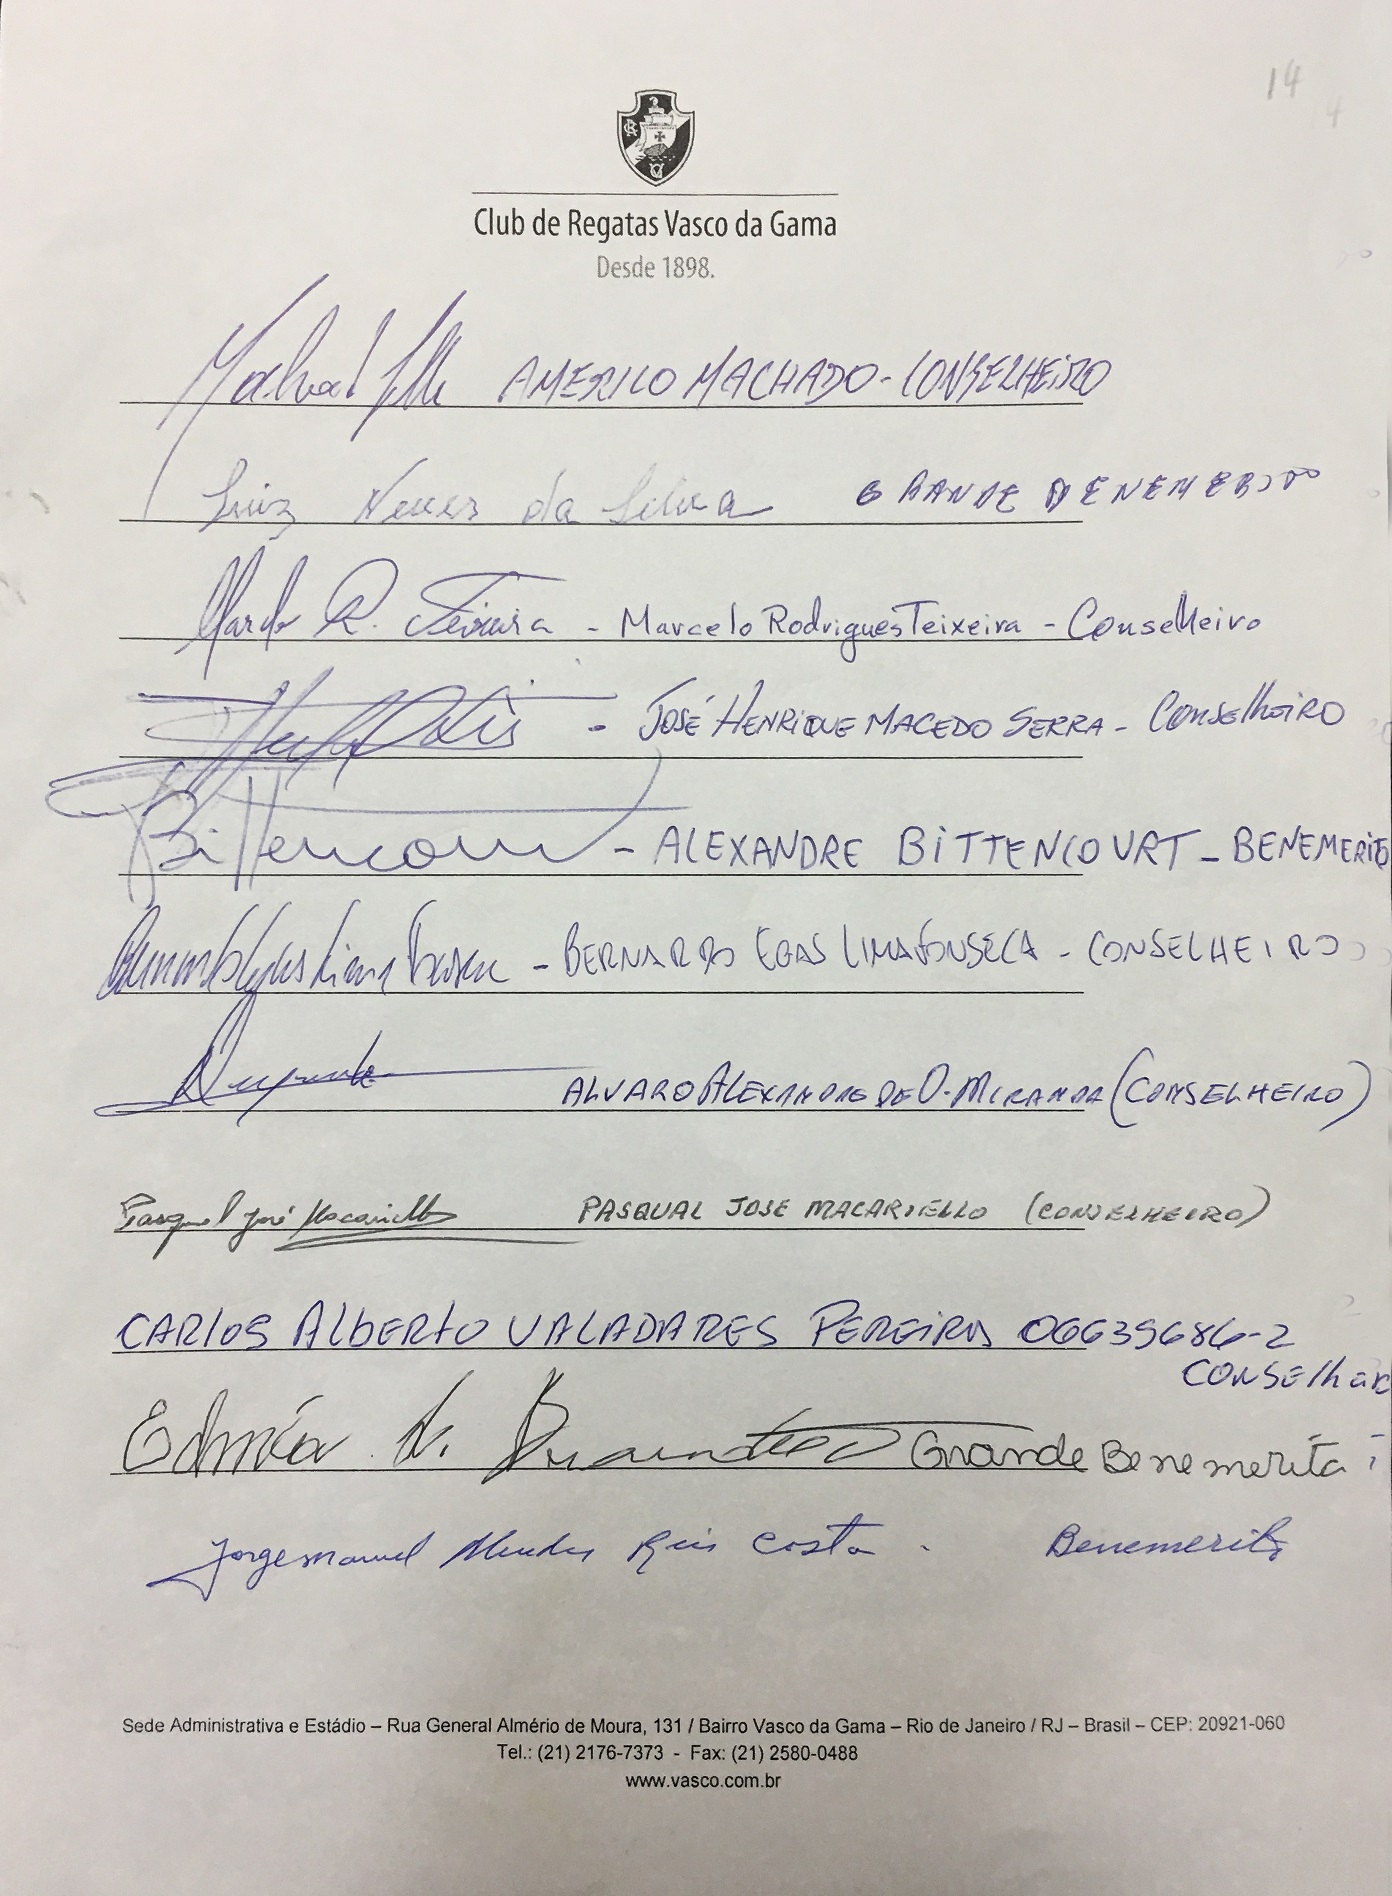 14
Club de Regatas Vasco da Gama
Desde 1898.
AMERICO MACHADO - CONSELHEIRO
Luiz Neves da Silva GRANDE BENEMERITO
Marcelo R. Teixeira - Marcelo Rodrigues Teixeira - Conselheiro
- JOSÉ HENRIQUE MACEDO SERRA - CONSELHEIRO
Bittencourt - ALEXANDRE BITTENCOURT - BENEMERITO
Bernardo Egas Lima Fonseca - BERNARDO EGAS LIMA FONSECA - CONSELHEIRO
ALVARO ALEXANDRE DE O. MIRANDA (CONSELHEIRO)
Pasqual José Macariello PASQUAL JOSE MACARIELLO (CONSELHEIRO)
CARLOS ALBERTO VALADARES PEREIRA 06635686-2
CONSELHEIRO
Grande Benemérita
Jorge Manuel Mendes Reis Costa. Benemerito
Sede Administrativa e Estádio – Rua General Almério de Moura, 131 / Bairro Vasco da Gama – Rio de Janeiro / RJ – Brasil – CEP: 20921-060
Tel.: (21) 2176-7373 - Fax: (21) 2580-0488
www.vasco.com.br